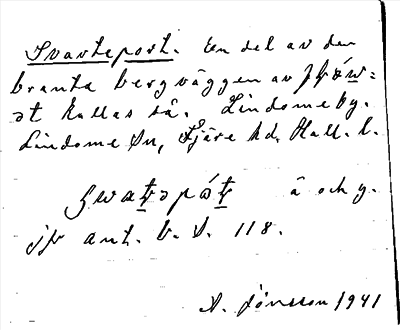 Svarteport. En del av den
branta bergväggen av
ət kallas så. Lindome by.
Lindome sn, Fjäre hd, Hall. l.
å och y.
jfr ant. b. s. 118.
A. Jönsson 1941